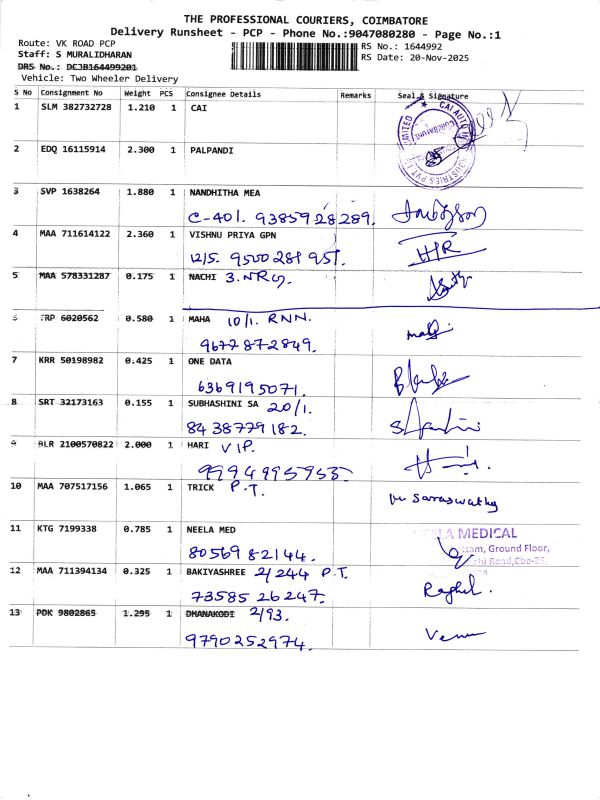 THE PROFESSIONAL COURIERS, COIMBATORE
Delivery Runsheet - PCP - Phone No.:9047080280 - Page No.:1
Route: VK ROAD PCP
RS No.: 1644992
Staff: S MURALIDHARAN
RS Date: 20-Nov-2025
DRS No.: DCJB164499201
Vehicle: Two Wheeler Delivery
S No Consignment No Weight PCS Consignee Details Remarks Seal & Signature
1 SLM 382732728 1.210 1 CAI
2 EDQ 16115914 2.300 1 PALPANDI
3 SVP 1638264 1.880 1 NANDHITHA MEA
C-401. 9385928289.
4 MAA 711614122 2.360 1 VISHNU PRIYA GPN
12/5. 9500289951.
5 MAA 578331287 0.175 1 NACHI
6 TRP 6020562 0.580 1 MAHA 10/1. RNN.
9677872849.
7 KRR 50198982 0.425 1 ONE DATA
6369195071.
8 SRT 32173163 0.155 1 SUBHASHINI SA 20/1.
8438779182.
9 BLR 2100570822 2.000 1 HARI VIP.
9994995955.
10 MAA 707517156 1.065 1 TRICK P.T. Saraswathy
11 KTG 7199338 0.785 1 NEELA MED
MEDICAL
Ground Floor,
8056982144. Road,Cbe-35.
12 MAA 711394134 0.325 1 BAKIYASHREE 2/244 P.T.
7358526247. Raghul.
13 PDK 9802865 1.295 1 DHANAKODI 2/93.
9790252974. Venu